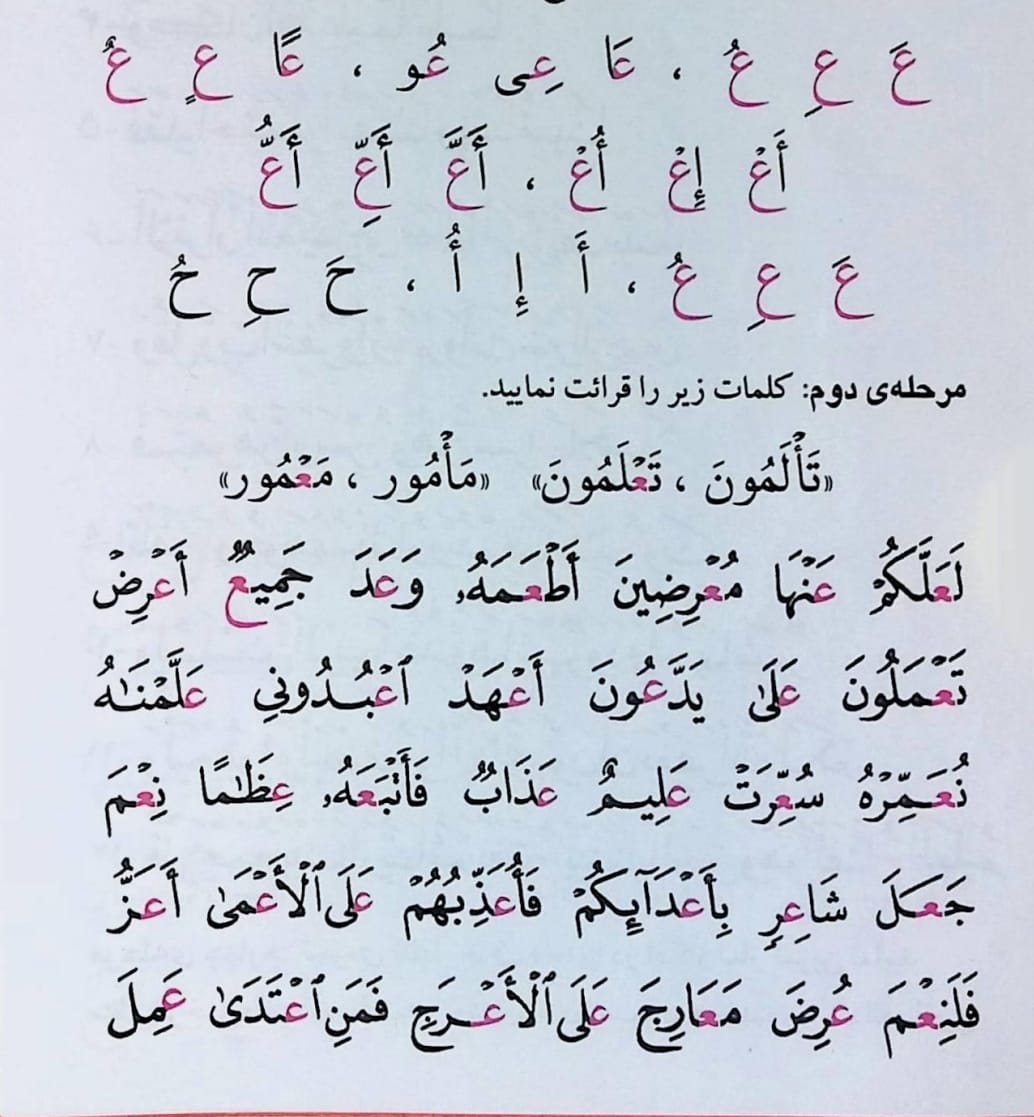 عَ عِ عُ ، عَا عِی عُو ، عًا عٍ عٌ
أَعْ إِعْ أُعْ ، أَعَّ أَعِّ أَعُّ
عَ عِ عُ ، أَ إِ أُ ، حَ حِ حُ
مرحله‌ی دوم: کلمات زیر را قرائت نمایید.
«تَأْلَمُونَ ، تَعْلَمُونَ» «مَأْمُور ، مَعْمُور»
لَعَلَّكُمْ عَنْهَا مُعْرِضِينَ أَطْعَمَهُۥ وَعَدَ جَمِيعٌ أَعْرِضْ
تَعْمَلُونَ عَلَىٰ يَدَّعُونَ أَعْهَدْ ٱعْبُدُونِي عَلَّمْنَـٰهُ
نُعَمِّرْهُ سُعِّرَتْ عَلِيمٌ عَذَابٌ فَأَتْبَعَهُۥ عِظَـٰمًا نِعْمَ
جَعَلَ شَاعِرٍ بِأَعْدَآئِكُمْ فَأُعَذِّبُهُمْ عَلَى ٱلْأَعْمَىٰ أَعَزُّ
فَلَنِعْمَ عُرِضَ مَعَارِجَ عَلَى ٱلْأَعْرَجِ فَمَنِ ٱعْتَدَىٰ عَمِلَ